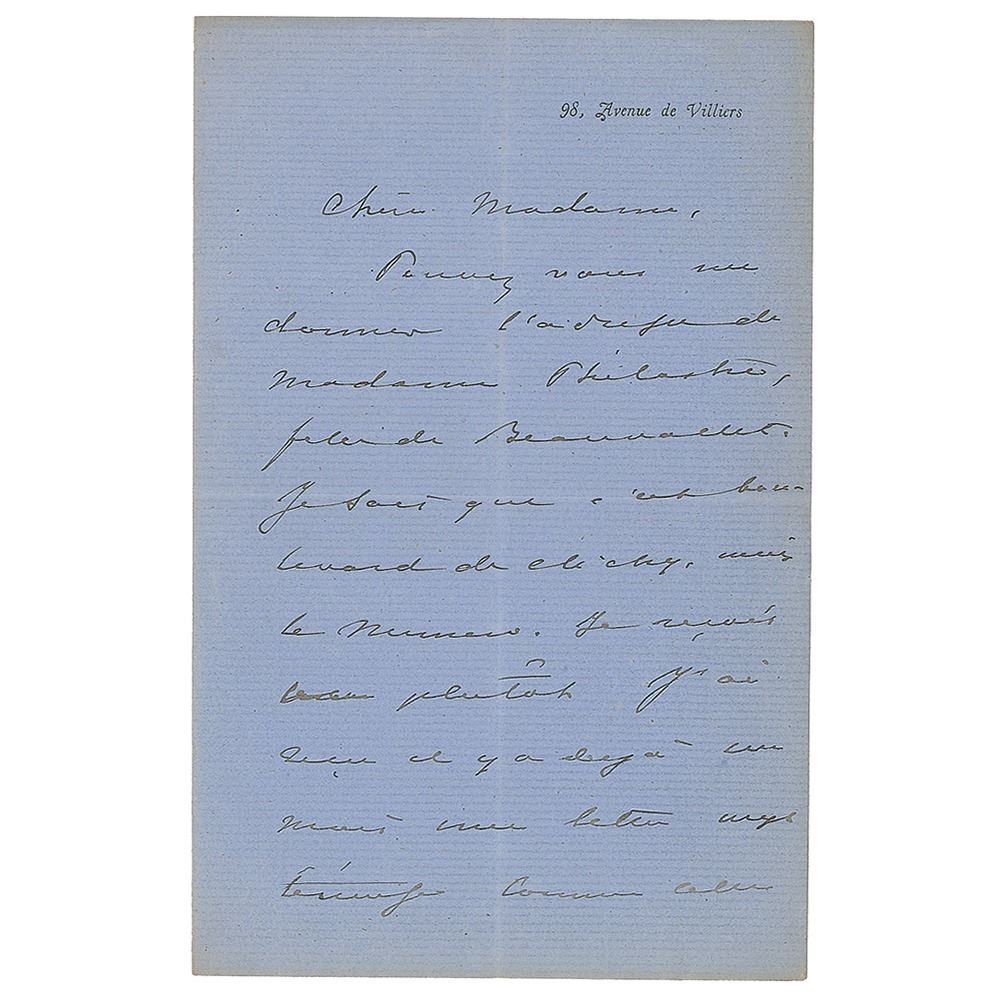 98, Avenue de Villiers
Chère Madame,
Pouvez vous me
donner l'adresse de
Madame Philastre,
fille de Beauvallet.
Je sais que c'est bou-
levard de Clichy, mais
le numero. Je reçois
plutôt j'ai
reçu il y a dejà un
mois une lettre mys
térieuse comme celle